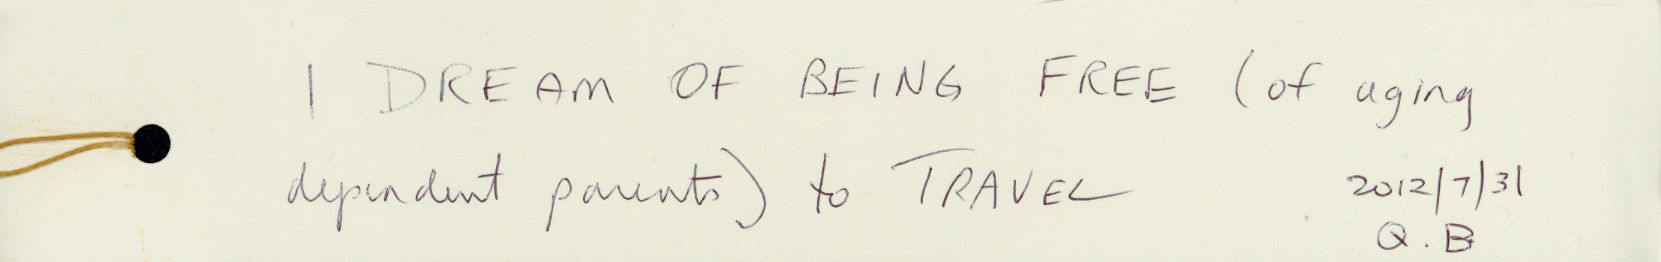 I DREAM OF BEING FREE (of aging
dependent parents) to TRAVEL
2012/7/31
Q.B